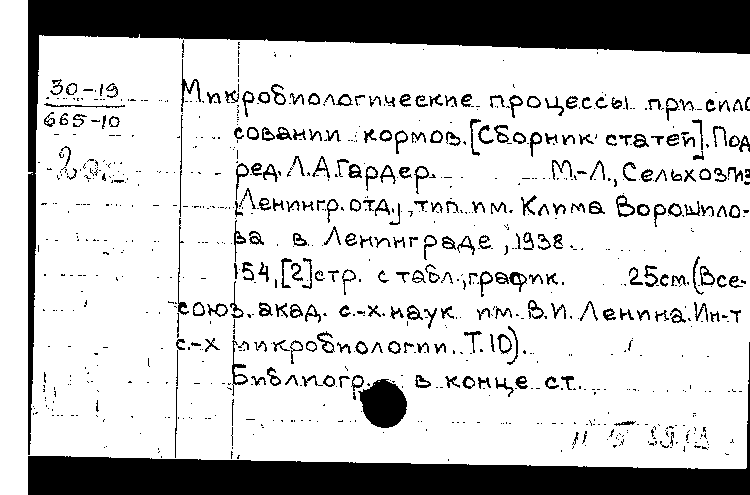 30-19
665-10
2 экз
Микробиологические процессы при сило
совании кормов. [Сборник статей]. Под
ред. Л.А.Гардер. М.-Л., Сельхозгиз
[Ленингр. отд.], тип. им. Клима Ворошило-
ва в Ленинграде, 1938.
154, [2] стр. с табл., график. 25см. (Все-
союз. акад. с.-х. наук им. В.И. Ленина. Ин-т
с.-х микробиологии. Т.10).
Библиогр. в конце ст.